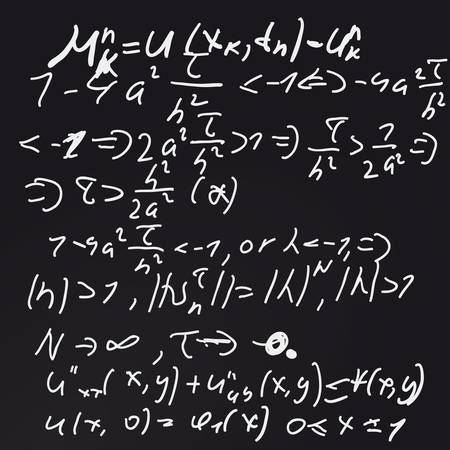 μₖⁿ = u(xₖ, tₙ) - uₖⁿ
1 - 4a² τ/h² < -1 <=> -4a² τ/h²
< -1 => 2a² τ/h² > 1 => τ/h² > 1/2a² =>
=> τ > h²/2a² (α)
1 - 4a² τ/h² < -1, or λ < -1, =>
|h| > 1, ||= |λ|ᴺ, |λ| > 1
N → ∞, τ → 0.
u″ₓₓ(x,y) + u″(x,y) ≤ (x,y)
u(x, 0) = φ₁(x) 0 ≤ x ≤ 1